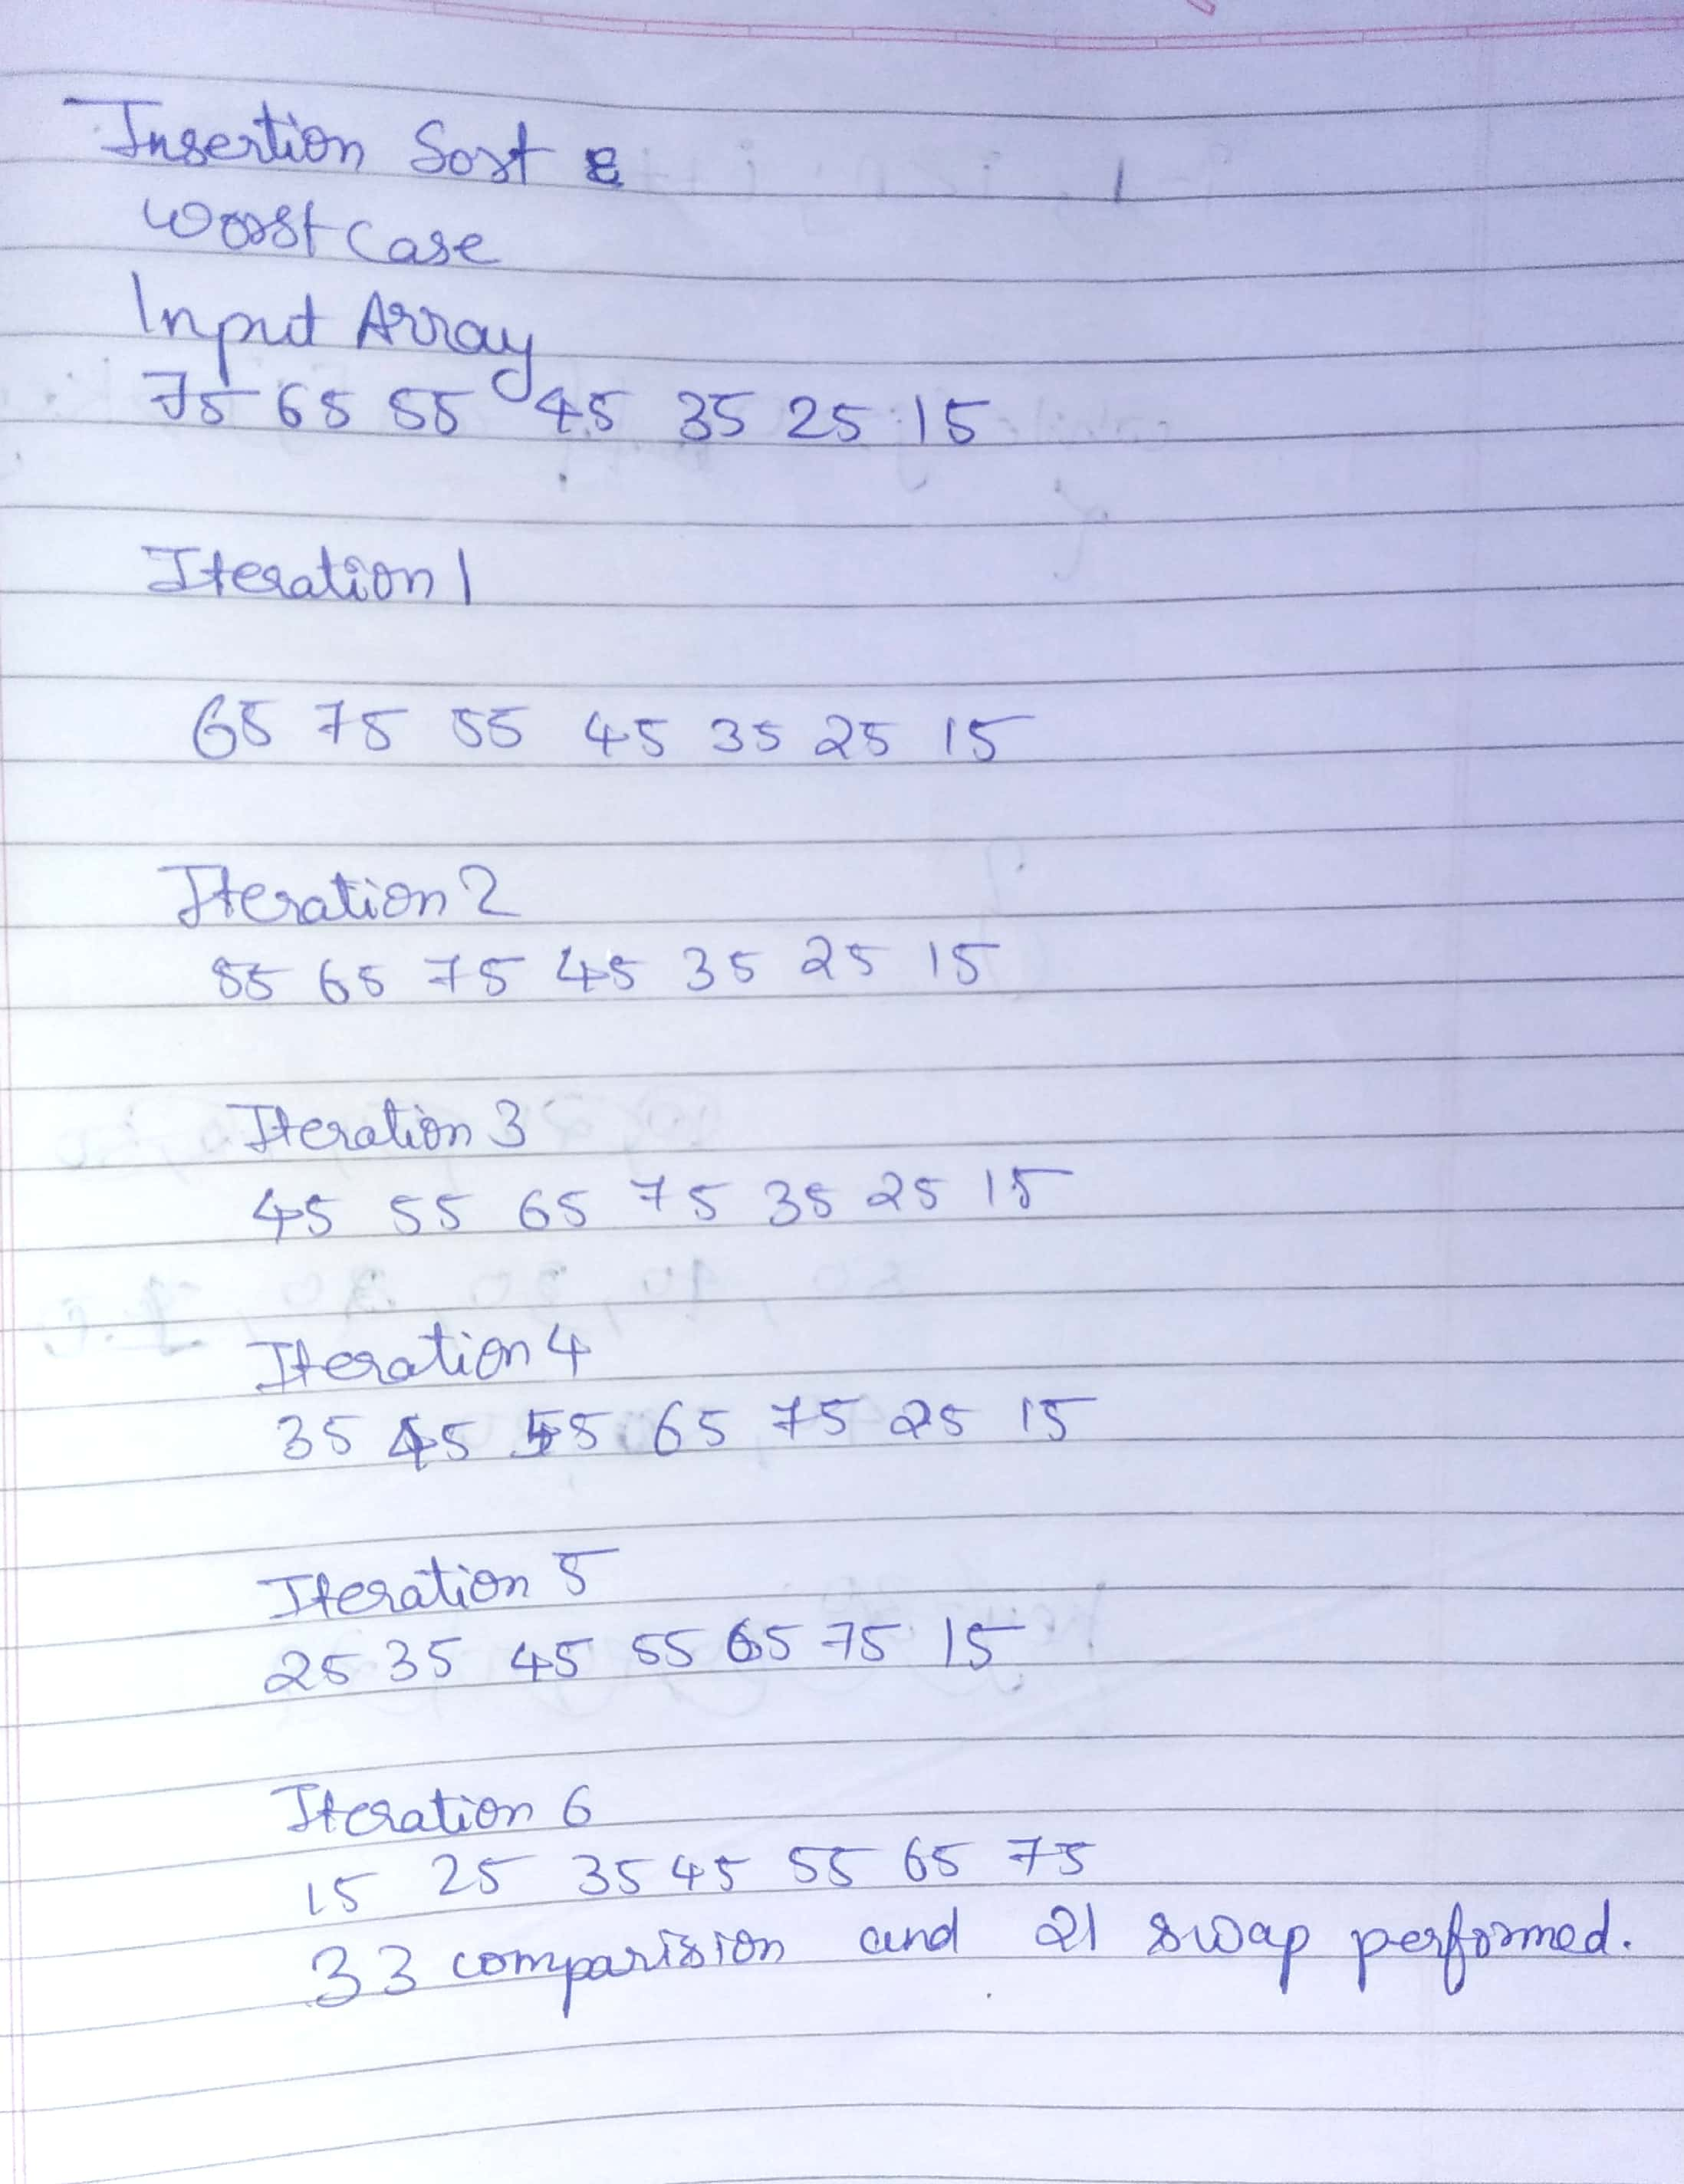 Insertion Sort :
Worst Case
Input Array
75 65 55 45 35 25 15
Iteration 1
65 75 55 45 35 25 15
Iteration 2
55 65 75 45 35 25 15
Iteration 3
45 55 65 75 35 25 15
Iteration 4
35 45 55 65 75 25 15
Iteration 5
25 35 45 55 65 75 15
Iteration 6
15 25 35 45 55 65 75
33 comparision and 21 swap performed.